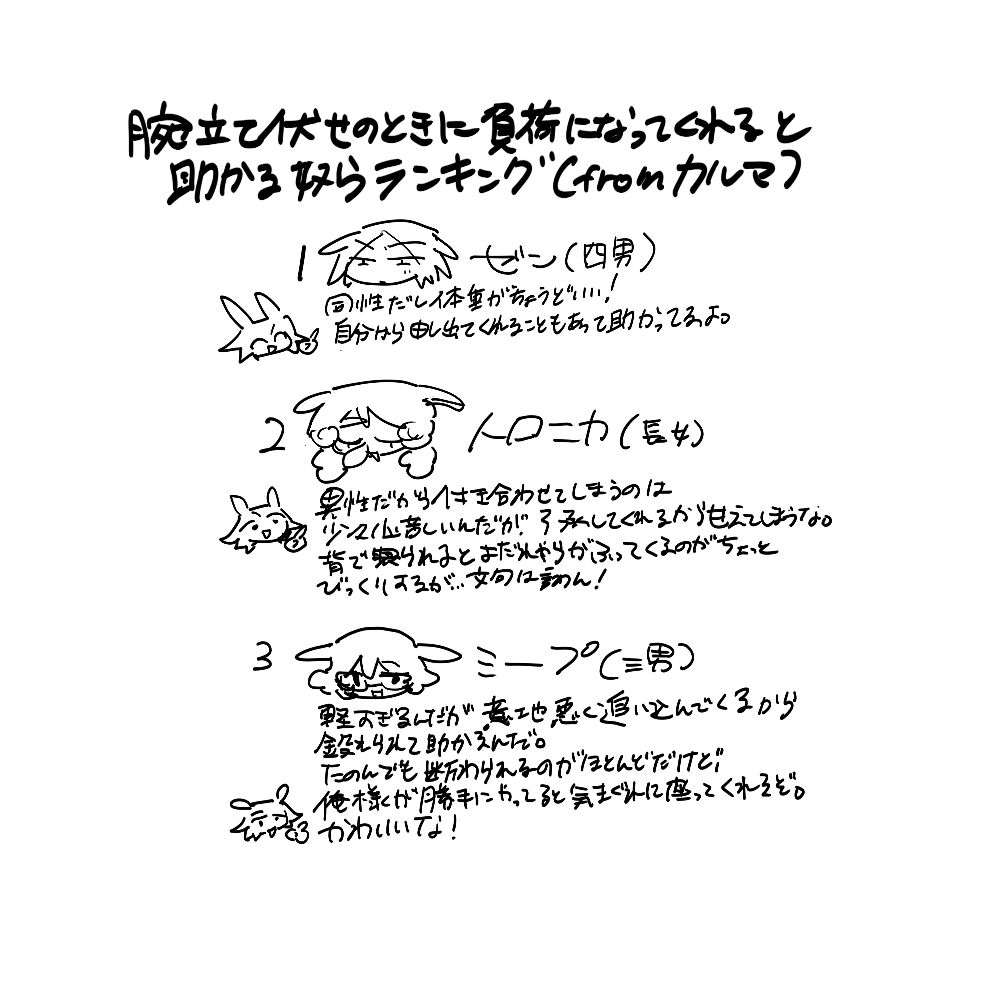 腕立て伏せのときに負荷になってくれると
助かる奴らランキング(fromカルマ)
1 ゼン(四男)
同性だし体重がちょうどいい!
自分から申し出てくれることもあって助かってるよ。
2 トロニカ(長女)
異性だから付き合わせてしまうのは
少々心苦しいんだが、了承してくれるから甘えてしまうな。
背で寝られるとよだれやらがふってくるのがちょっと
びっくりするが…文句は言わん!
3 ミープ(三男)
軽すぎるんだが意地悪く追い込んでくるから
鍛えられて助かるんだ。
たのんでも断わられるのがほとんどだけど、
俺様が勝手にやってると気まぐれに座ってくれるぞ。
かわいいな!